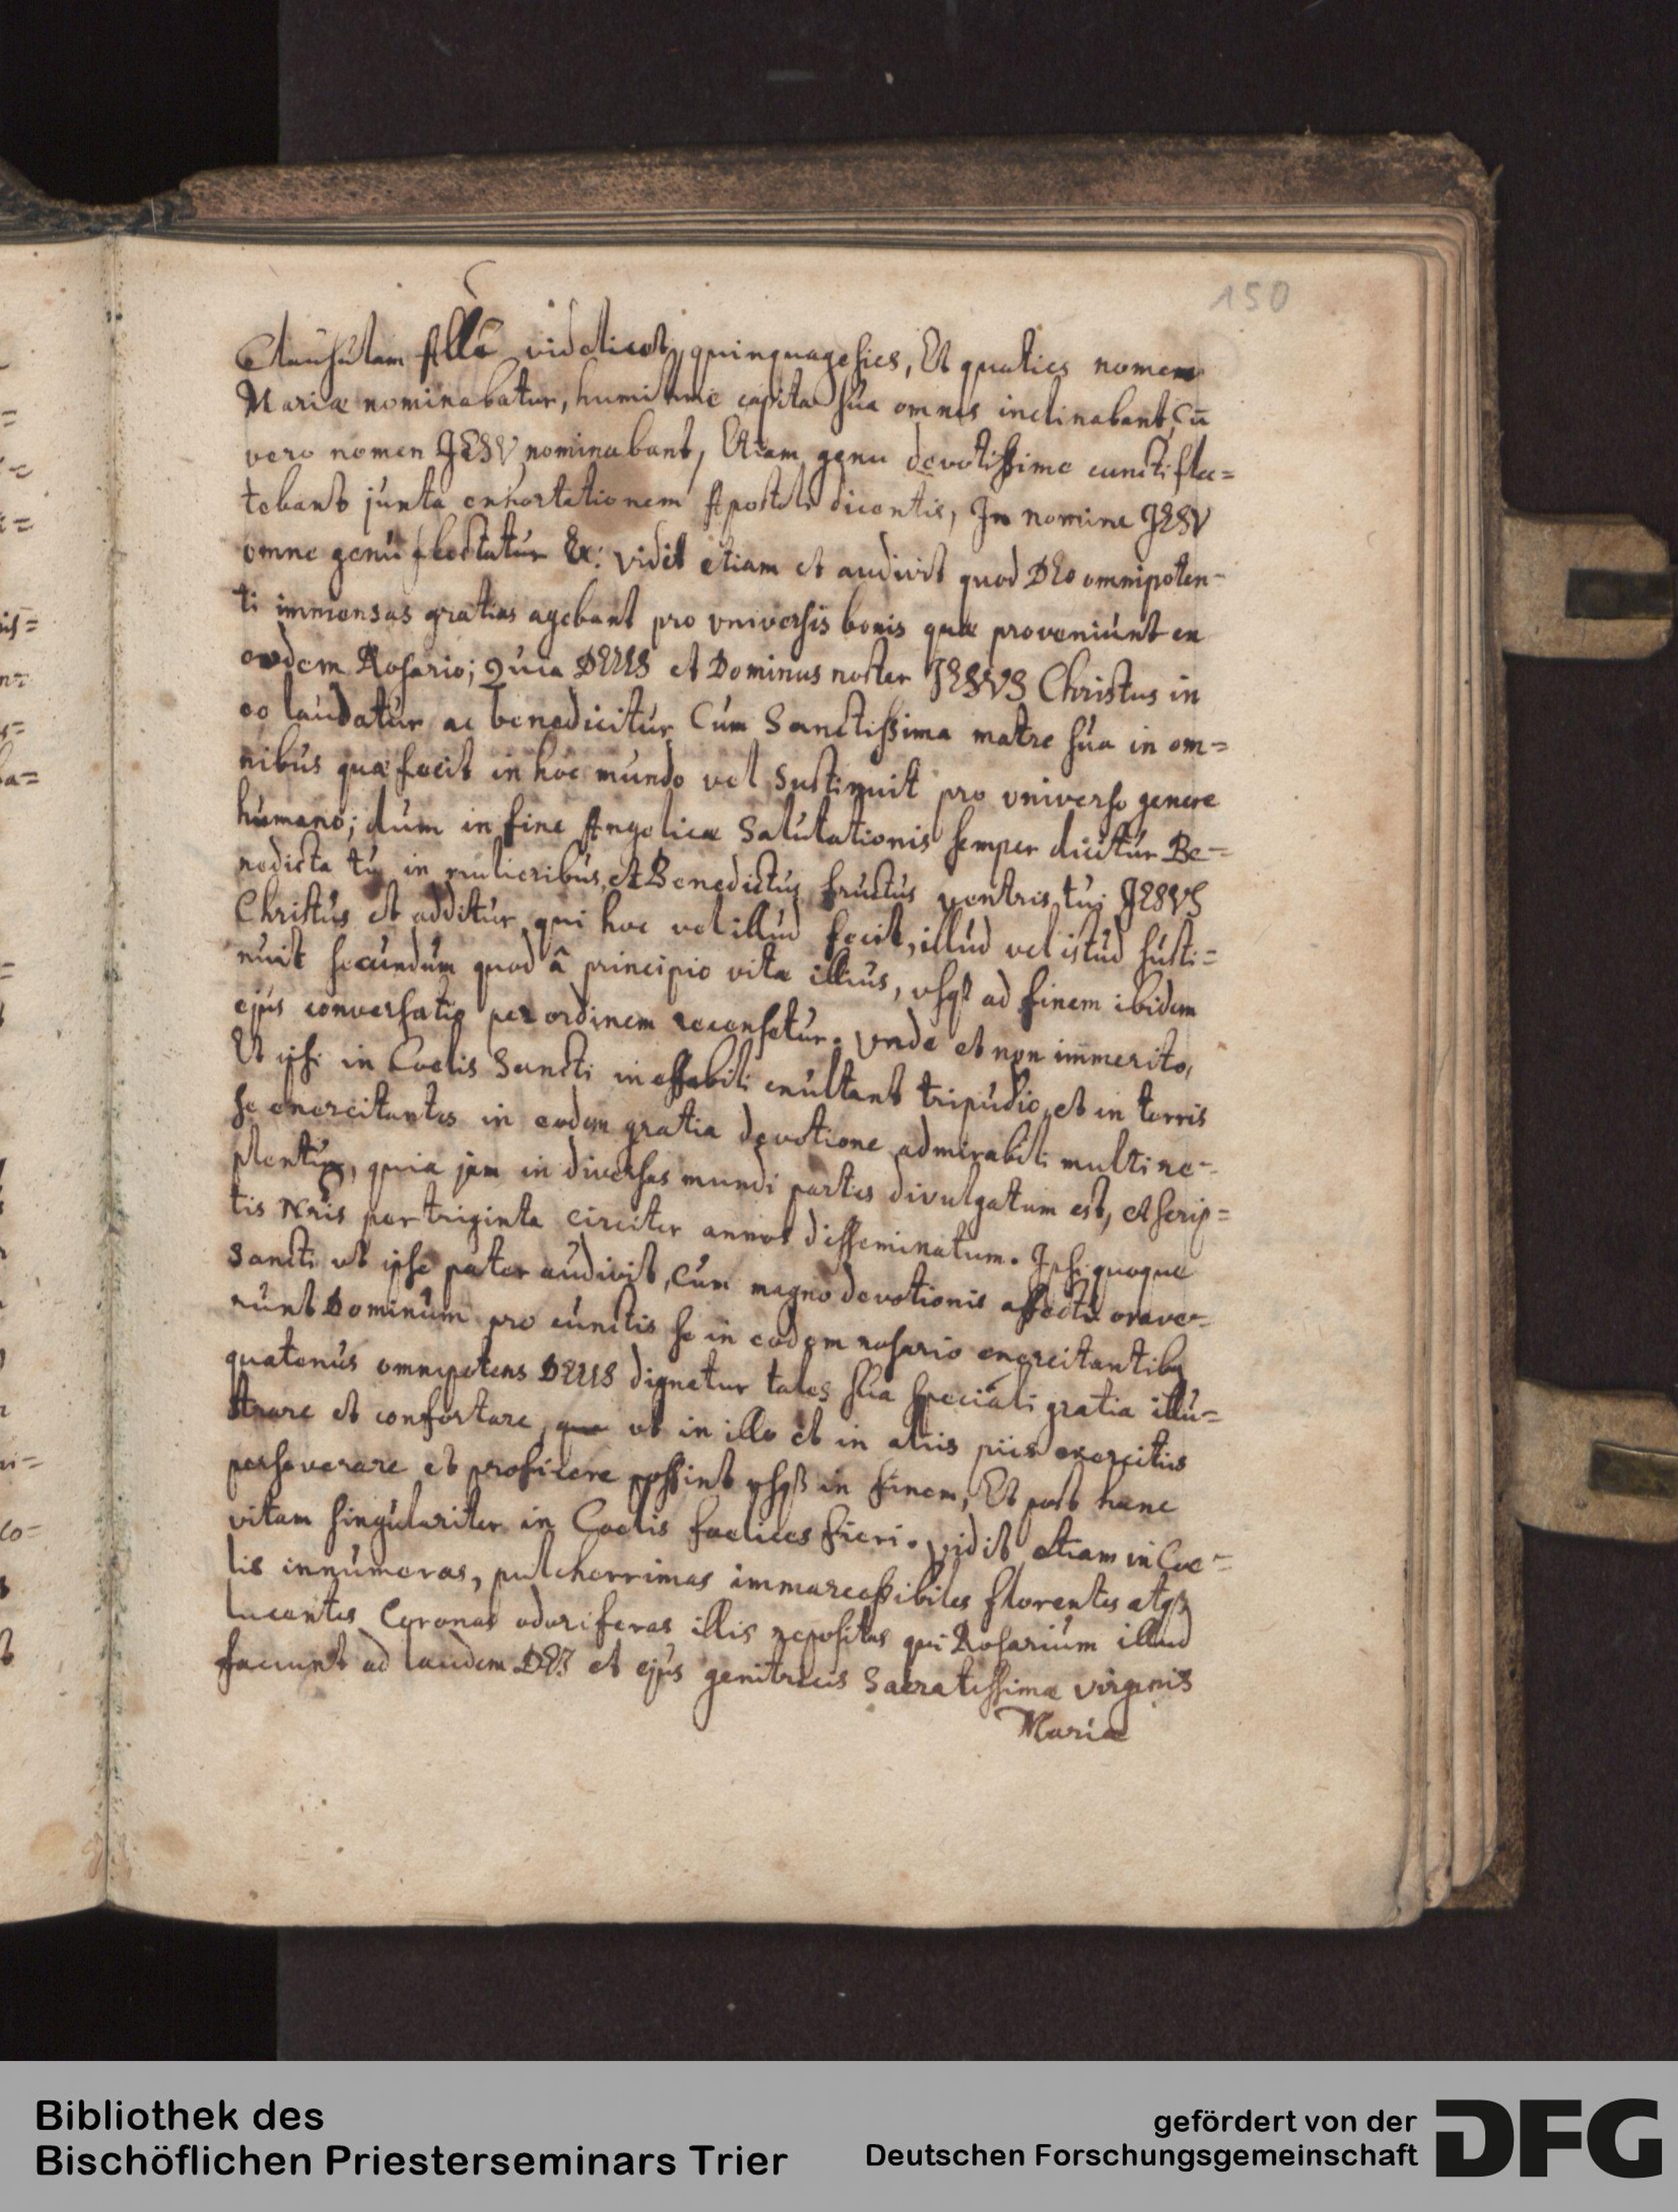 150
Clausulam Alla videlicet, quinquagesies, Et quoties nomen
Mariæ nominabatur, humillime capita sua omnes inclinabant, Cū
vero nomen JESV nominabant, Etiam genu devotissime cuncti flec=
tebant juxta exhortationem Apostoli dicentis, In nomine JESV
omne genu flectatur &c: Vidit etiam et audivit quod DEo omnipoten-
ti immensas gratias agebant pro vniversis bonis quæ proveniunt ex
eodem Rosario; Quia DEUS et Dominus noster JESVS Christus in
eo laudatur ac benedicitur Cum Sanctissima matre sua in om=
nibus quæ fecit in hoc mundo vel Sustinuit pro vniverso genere
humano; dum in fine Angelicæ Salutationis semper dicitur Be-
nedicta tu in mulieribus, et Benedictus fructus ventris tui JESVS
Christus et additur qui hoc vel illud fecit, illud vel istud susti=
nuit secundum quod â principio vitæ illius, vsq3 ad finem ibidem
ejus conversatio per ordinem recensetur. Vnde et non immerito,
Et ipsi in Coelis Sancti ineffabili exultant tripudio, et in terris
se exercitantes in eodem gratia devotione admirabili multi re-
plentur, quia jam in diversas mundi partes divulgatum est, et scrip=
tis Nris per triginta circiter annos disseminatum. Ipsi quoque
Sancti ut ipse pater audivit, Cum magno devotionis affectu orave-
runt Dominum pro cunctis se in eodem rosario exercitantibq
quatenus omnipotens DEUS dignetur tales sua speciali gratia illu=
strare et confortare, ut in illo et in aliis piis exercitiis
perseverare et proficere possint vsq3 in finem, Et post hanc
vitam singulariter in Coelis faelices fieri. Vidit etiam in Coe-
lis innumeras, pulcherrimas immarcessibiles florentes atq3
lucentes Coronas odoriferas illis repositas qui Rosarium illud
faciunt ad laudem DEI et ejus genitricis Sacratissimæ virginis
Mariæ
Bibliothek des
Bischöflichen Priesterseminars Trier
gefördert von der
Deutschen Forschungsgemeinschaft
DFG